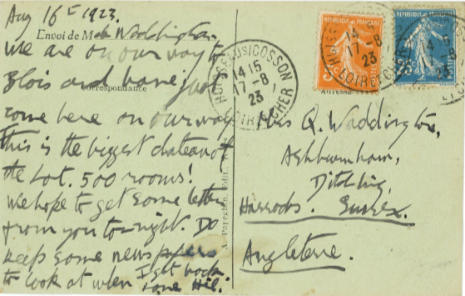 Aug 16th 1923.
Envoi de M
Waddington
We are on our way to
Blois and have just
Correspondance
come here on our way
this is the biggest chateau of
the lot. 500 rooms!
We hope to get some letters
from you to-night. Do
keep some newspapers
to look at when I get back
love
14 15
17-8
23
LOIR-ET-CHER
14
17-8
23
LOIR-ET-CHER
25
Miss Q. Waddington,
Ashburnham,
Ditchling,
Sussex.
Angleterre.